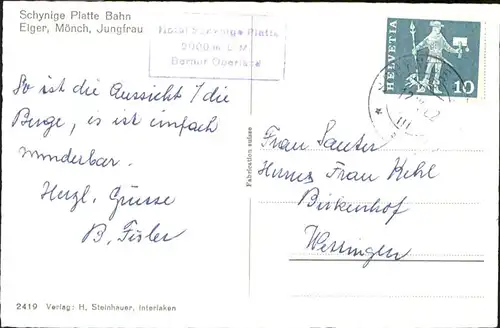 Schynige Platte Bahn
Eiger, Mönch, Jungfrau
Hotel Schynige Platte
2000 m ü. M.
Berner Oberland
HELVETIA
10
So ist die Aussicht / die
Berge, es ist einfach
wunderbar.
Herzl. Grüsse
B.
Frau Sauter
Frau Kehl
Birkenhof
Wettingen
Fabrication suisse
2419 Verlag: H. Steinhauer, Interlaken